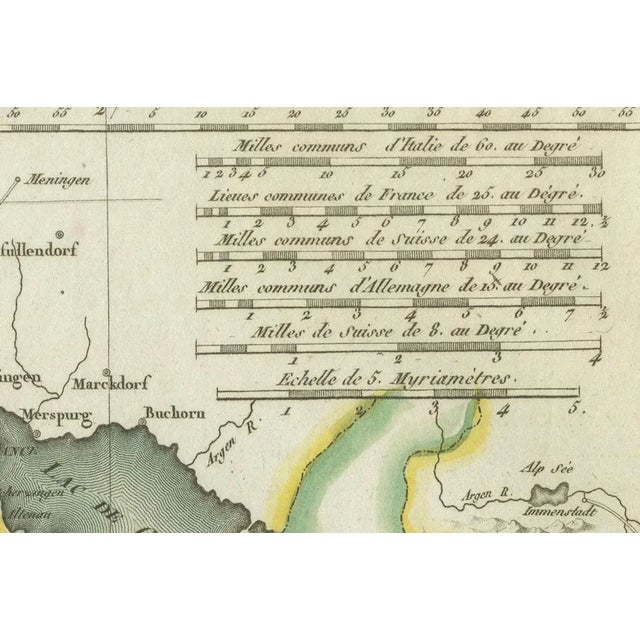 50 55 2 5 10 15 20 25 30 35 40 45 50 55
Milles communs d'Italie de 60. au Degré
1 2 3 4 5 10 15 20 25 30
Meningen
Lieues communes de France de 25. au Dégré.
1 2 3 4 5 6 7 8 9 10 11 12 ½
Milles communs de Suisse de 24. au Degré
fullendorf
1 2 3 4 5 6 7 8 9 10 11 12
Milles communs d'Allemagne de 15. au Degré.
1 2 3 4 5 6 7 ½
Milles de Suisse de 8. au Degré.
1 2 3 4
ingen
Marckdorf
Echelle de 5. Myriamètres.
1 2 3 4 5.
Merspurg
Buchorn
Argen R.
ANCE
LAC DE
Alp Sée
Argen R.
Immenstadt